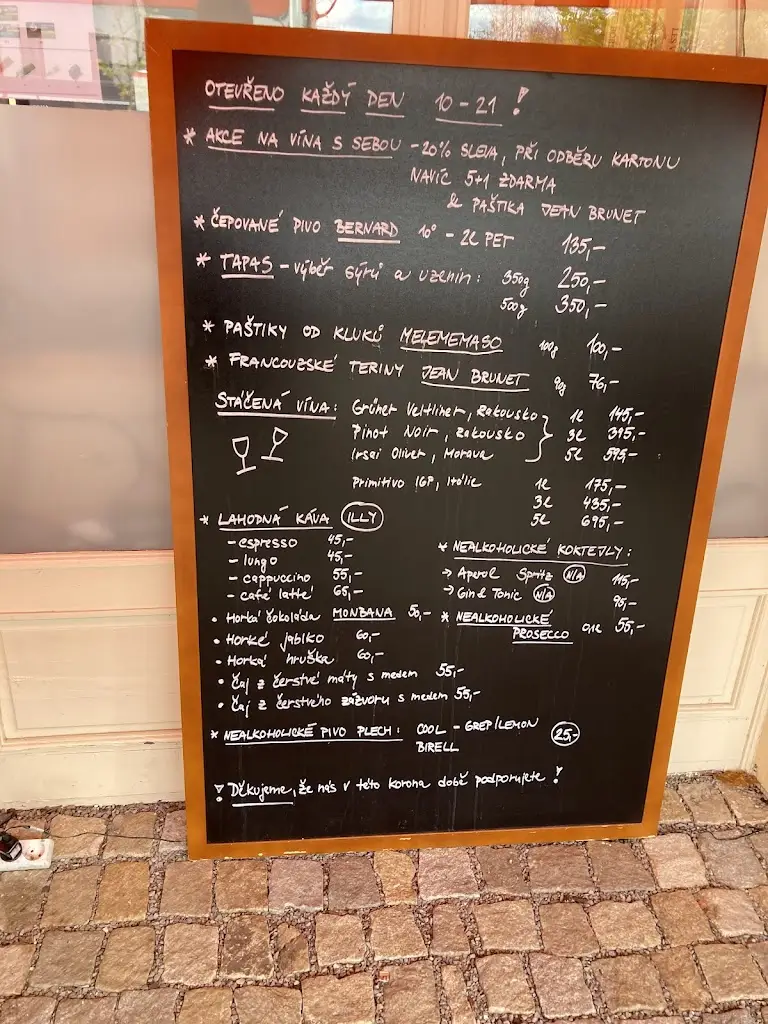 OTEVŘENO KAŽDÝ DEN 10-21 !
* AKCE NA VÍNA S SEBOU -20% SLEVA, PŘI ODBĚRU KARTONU
NAVÍC 5+1 ZDARMA
& PAŠTIKA JEAN BRUNET
* ČEPOVANÉ PIVO BERNARD 10° - 2L PET 135,-
* TAPAS - výběr sýrů a uzenin: 350g 250,-
500g 350,-
* PAŠTIKY OD KLUKŮ MELEMEMASO 100g 100,-
* FRANCOUZSKÉ TERINY JEAN BRUNET 90g 76,-
STÁČENÁ VÍNA: Grüner Veltliner, Rakousko 1L 145,-
Pinot Noir, Rakousko 3L 395,-
Irsai Oliver, Morava 5L 595,-
Primitivo IGP, Itálie 1L 175,-
3L 435,-
5L 695,-
* LAHODNÁ KÁVA ILLY
- espresso 45,-
- lungo 45,-
- cappuccino 55,-
- café latté 65,-
• Horká čokoláda MONBANA 50,-
• Horké jablko 60,-
• Horká hruška 60,-
• Čaj z čerstvé máty s medem 55,-
• Čaj z čerstvého zázvoru s medem 55,-
* NEALKOHOLICKÉ KOKTEJLY:
→ Aperol Spritz N/A 115,-
→ Gin & Tonic N/A 95,-
* NEALKOHOLICKÉ
PROSECCO 0,1L 55,-
* NEALKOHOLICKÉ PIVO PLECH: COOL - GREP/LEMON 25,-
BIRELL
! Děkujeme, že nás v této korona době podporujete !